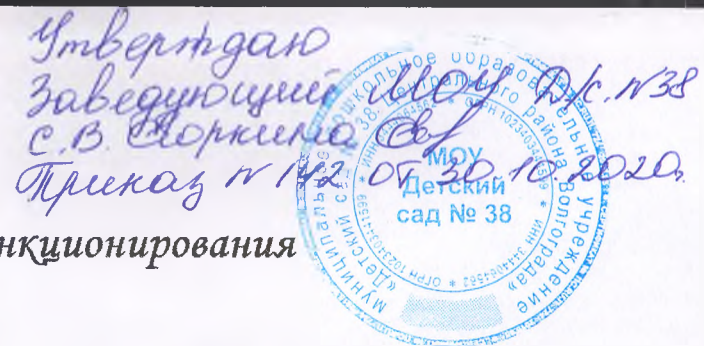 Утверждаю
Заведующий МОУ Д/с. №38
С.В.
Приказ № 142 от 30.10.2020г.
нкционирования
МОУ
Детский
сад № 38
муниципальное дошкольное образовательное учреждение
«Детский сад № 38 Центрального района Волгограда»